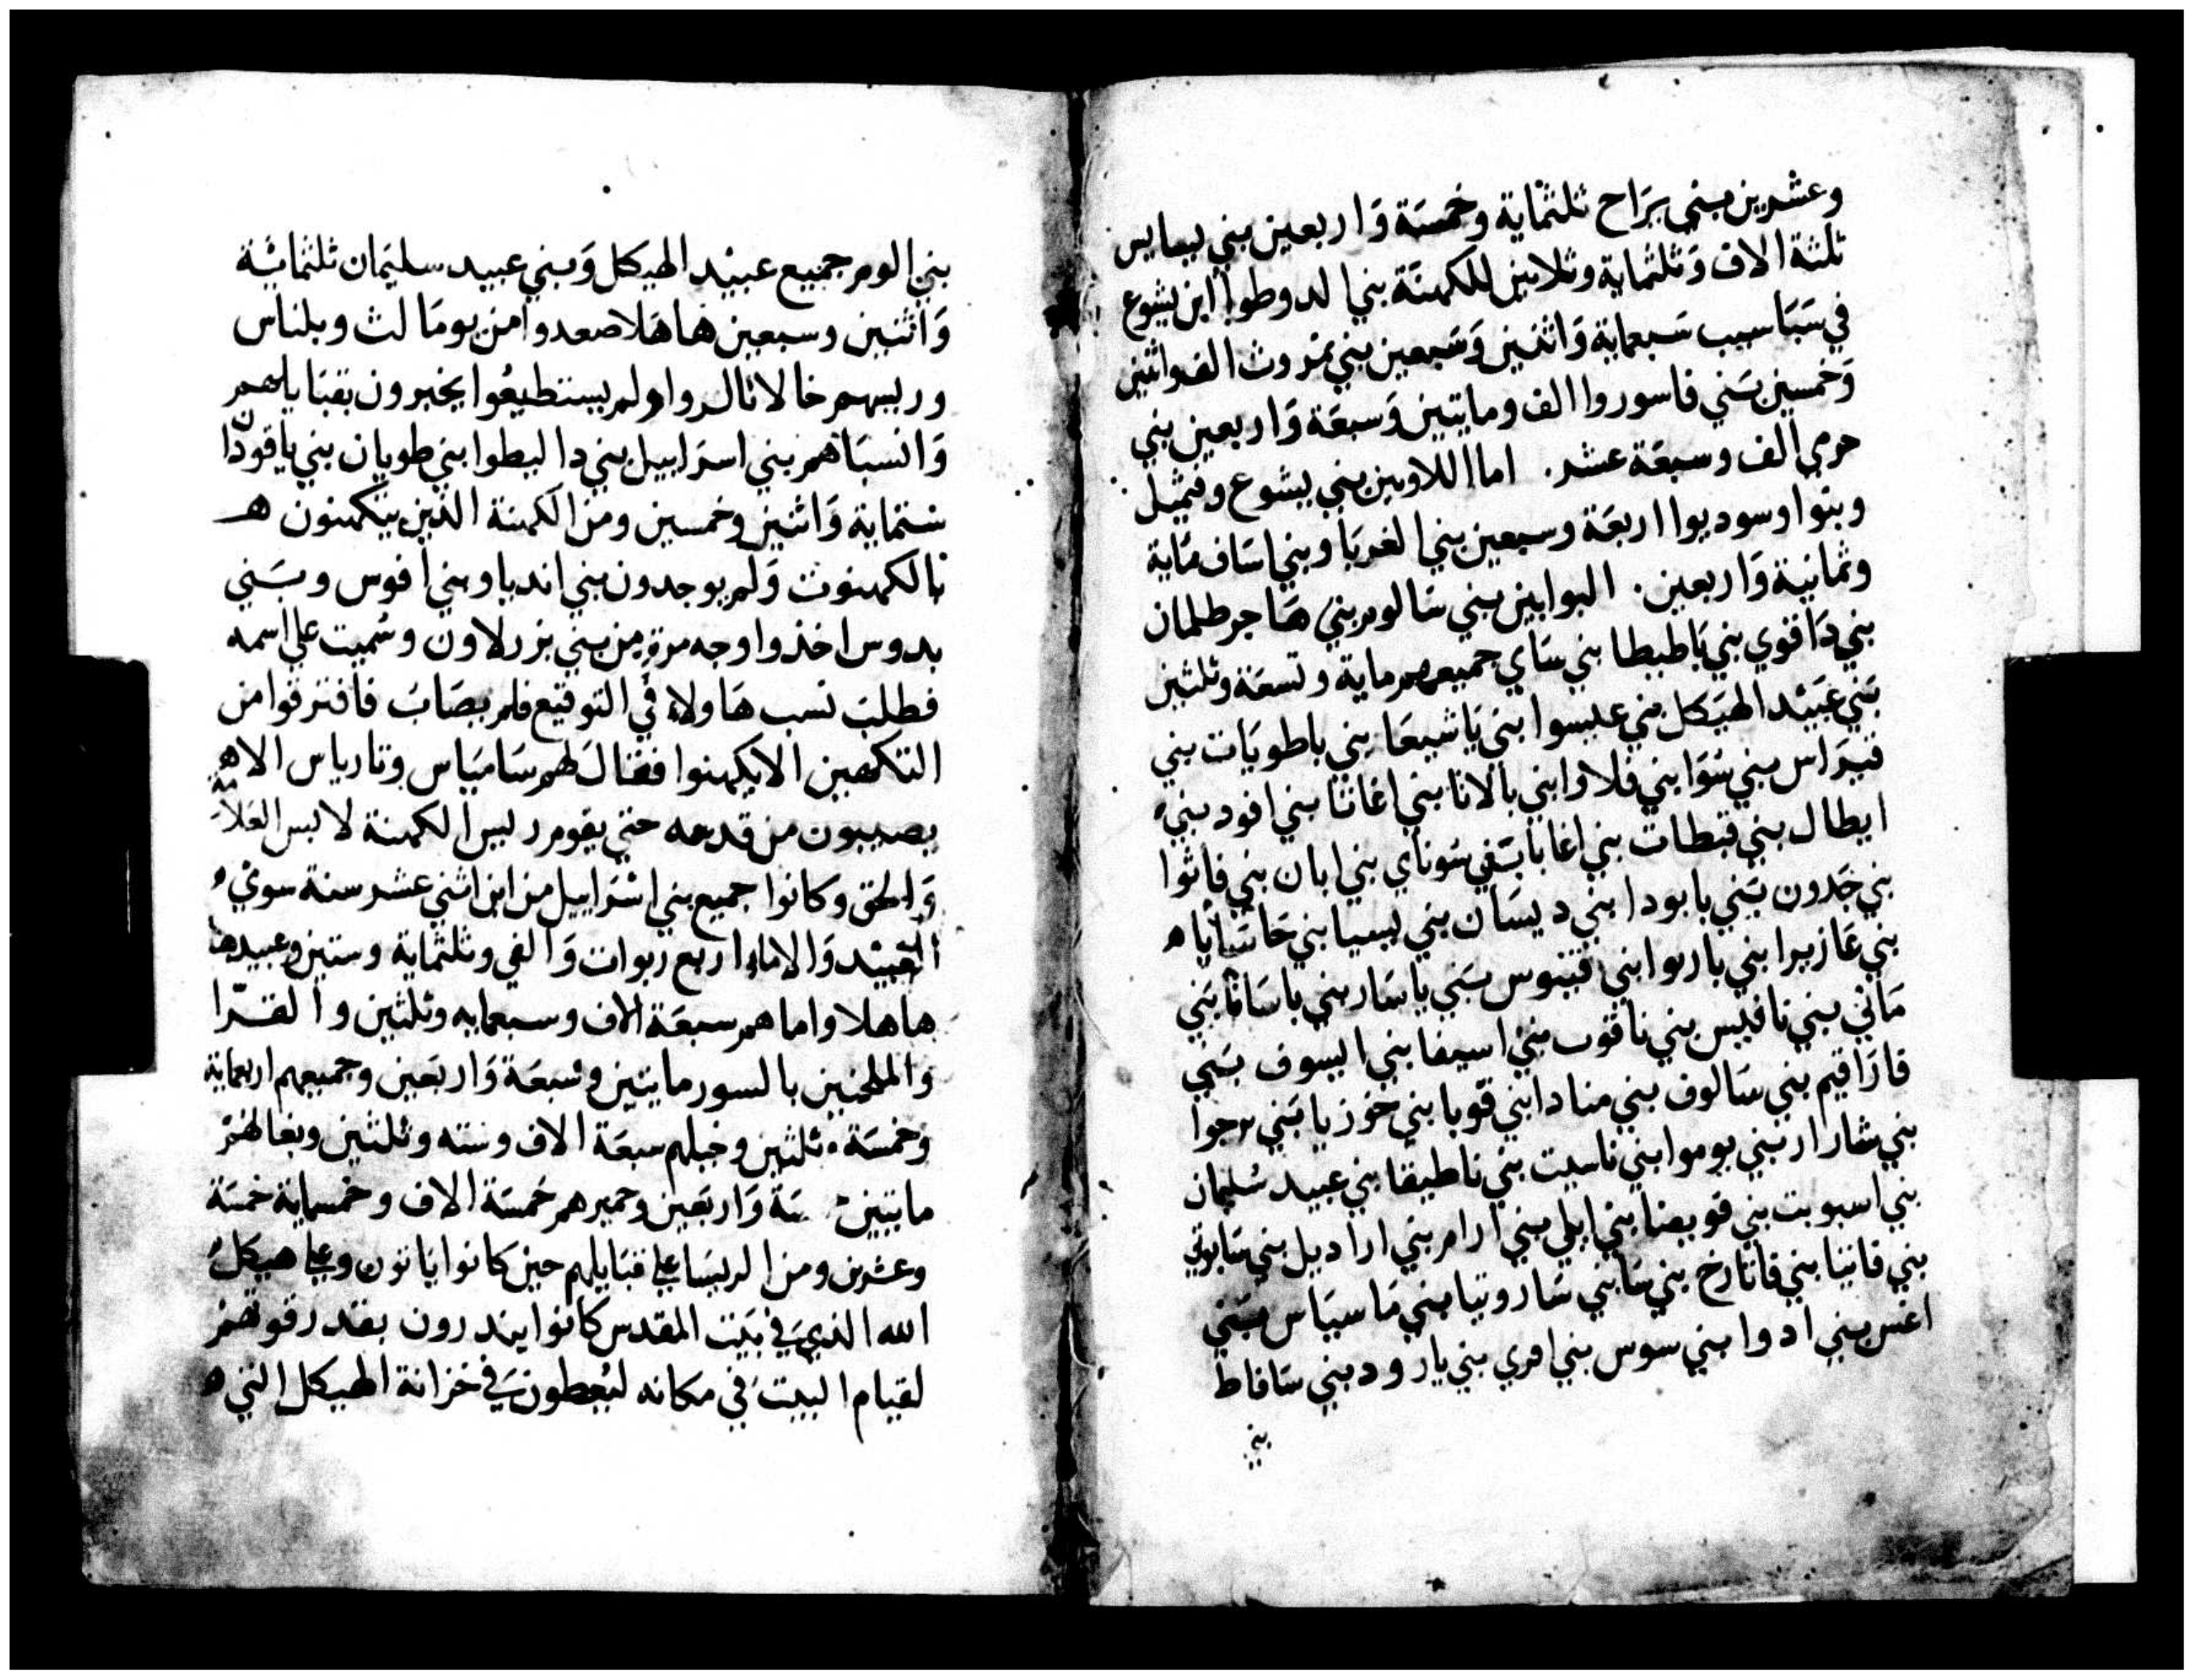 وعشرين بني يراح ثلثماية وخمسة واربعين بني بسايس
ثلثة الاف وثلثماية وثلاثين للكهنة بني الدوطوا ابن يشوع
في سباسيب سبعماية واثنين وسبعين بني تمروث الف واثنين
وخمسين بني فاسوروا الف ومايتين وسبعة واربعين بني
حرمي الف وسبعة عشر. اما اللاويين بني يشوع وقميل
وبنوا وسوديوا اربعة وسبعين بني الغربا وبني اساف ماية
وثمانية واربعين. البوابين بني سالوم بني هاجر طلمان
بني داقوي بني باطيطا بني ساي جميعهم ماية وتسعة وثلثين
بني عبيد الهيكل بني عيسوا بني ياشيعا بني باطويات بني
قيراس بني سوا بني فلادا بني بالانا بني اغاتا بني افود بني
ايطال بني قيطات بني اغابا بني سوناي بني ابان بني فاثوا
بني جدون بني يابودا بني ديسان بني بسيا بني حاشايا
بني عازيرا بني باربوا بني قينوس بني ياسار بني ياسانا بني
ماني بني نافيس بني ناقوب بني اسيفا بني ايسوف بني
فاراقيم بني سالوف بني منادا بني قوبا بني خوزيا بني برجوا
بني شارار بني بوموا بني ناسيت بني ناطيفا بني عبيد سليمان
بني اسبويت بني قوبصا بني ايلي بني ارام بني اراديل بني سابوتي
بني فانتيا بني فاتارخ بني سا بني ساروتيا بني ماسياس بني
اغس بني ادوا بني سوس بني امري بني يارود بني سافاط
بني
بني الوم جميع عبيد الهيكل وبني عبيد سليمان ثلثماية
واثنين وسبعين هاهلا صعدوا من يومالث وبلناس
وريسهم خالاثالروا ولم يستطيعوا يخبرون بقبايلهم
وانسباهم بني اسراييل بني دالبطوا بني طوبان بني ياقودا
ستماية واثنين وخمسين ومن الكهنة الذين يتكهنون
بالكهنوث ولم يوجدون بني انديا وبني افوس وبني
بدوس اخذوا وجه مرة من بني بزرلاون وسميت علي اسمه
فطلبت نسب هاولاء في التوقيع فلم يصاب فافترقوا من
التكهين الا يكهنوا فقال لهم ساميَاس وتارياس الا
يصيبون من قدسه حتي يقوم رييس الكهنة لابس العلامة
والحق وكانوا جميع بني اسراييل من ابن اثني عشر سنة سوي
العبيد والاماء اربع ربوات والفي وثلثماية وستين وعبيدهم
هاهلا واماهم سبعة الاف وسبعمايه وثلثين والقرا
والملحنين بالسور مايتين وسبعة واربعين وجميعهم اربعماية
وخمسة وثلثين وخيلهم سبعة الاف وسته وثلثين وبغالهم
مايتين سة واربعين وحميرهم خمسة الاف وخمسماية خمسة
وعشرين ومن الريسا علي قبايلهم حين كانوا ياتون وعلي هيكل
الله الذي في بيت المقدس كانوا ينذرون بقدر قوتهم
لقيام البيت في مكانه ليعطون في خزانة الهيكل التي